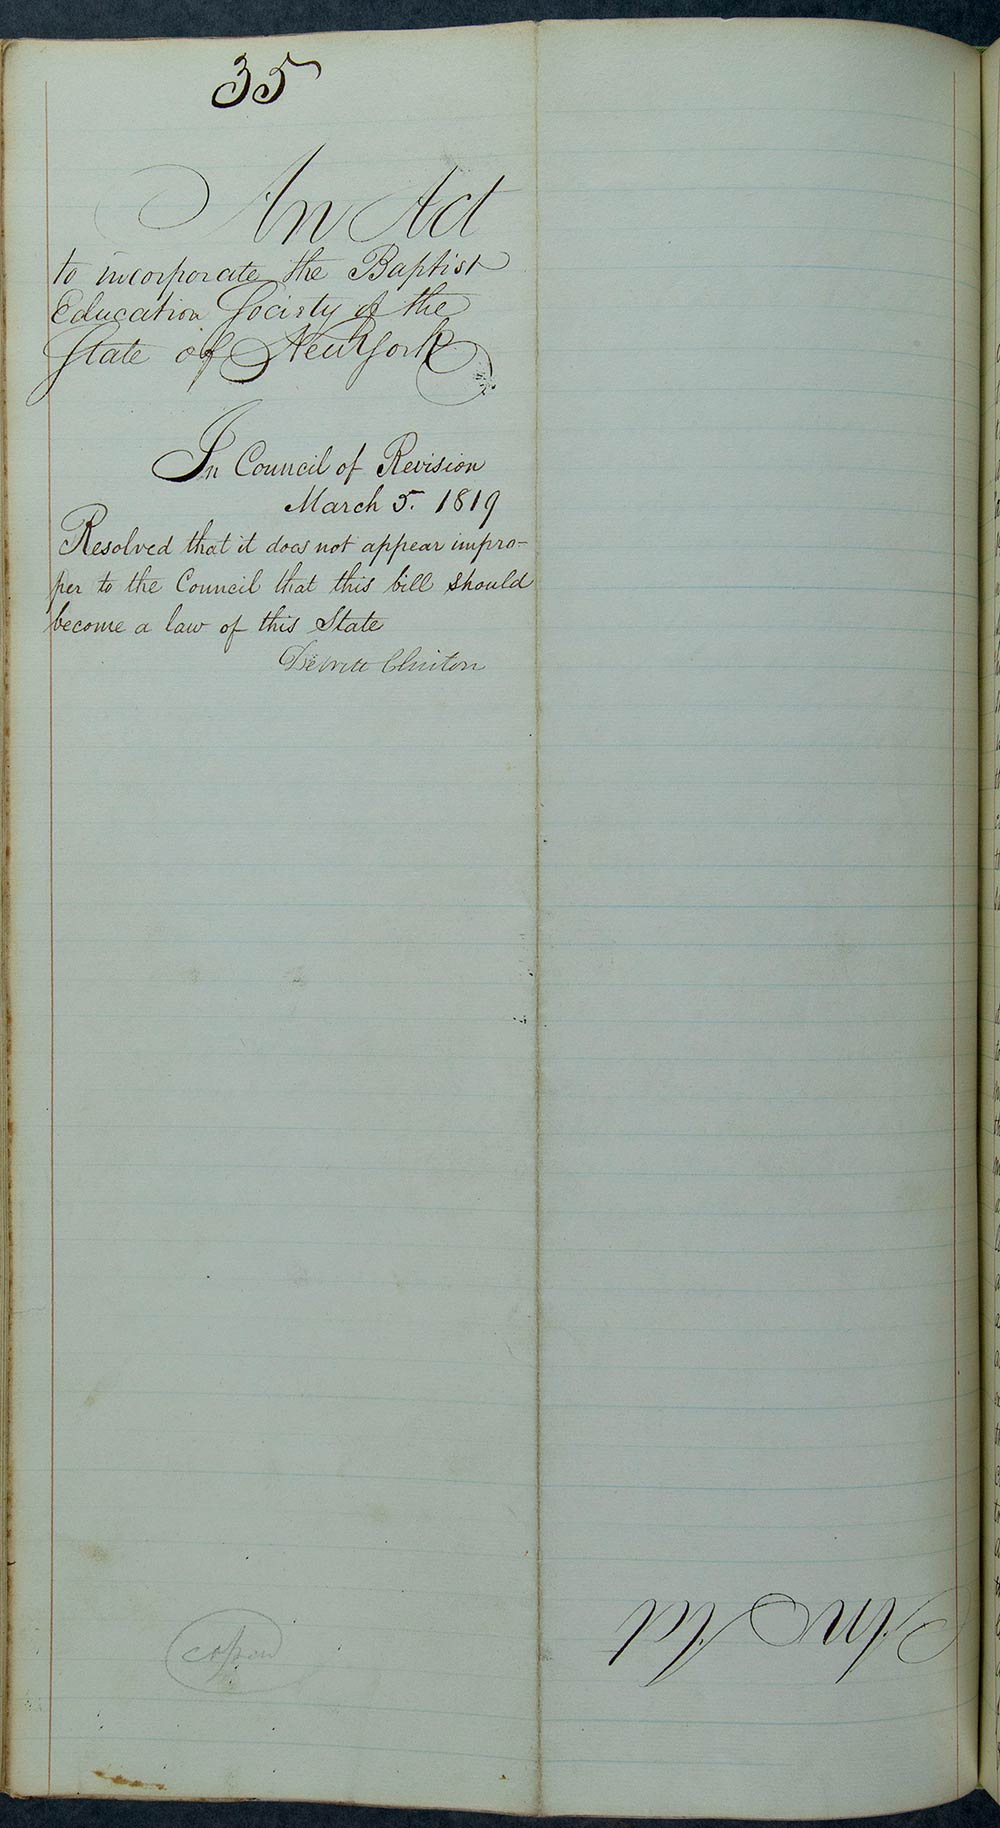 35
An Act
to incorporate the Baptist
Education Society of the
State of New York
In Council of Revision
March 5. 1819
Resolved that it does not appear impro-
per to the Council that this bill should
become a law of this State
DeWitt Clinton
An Act